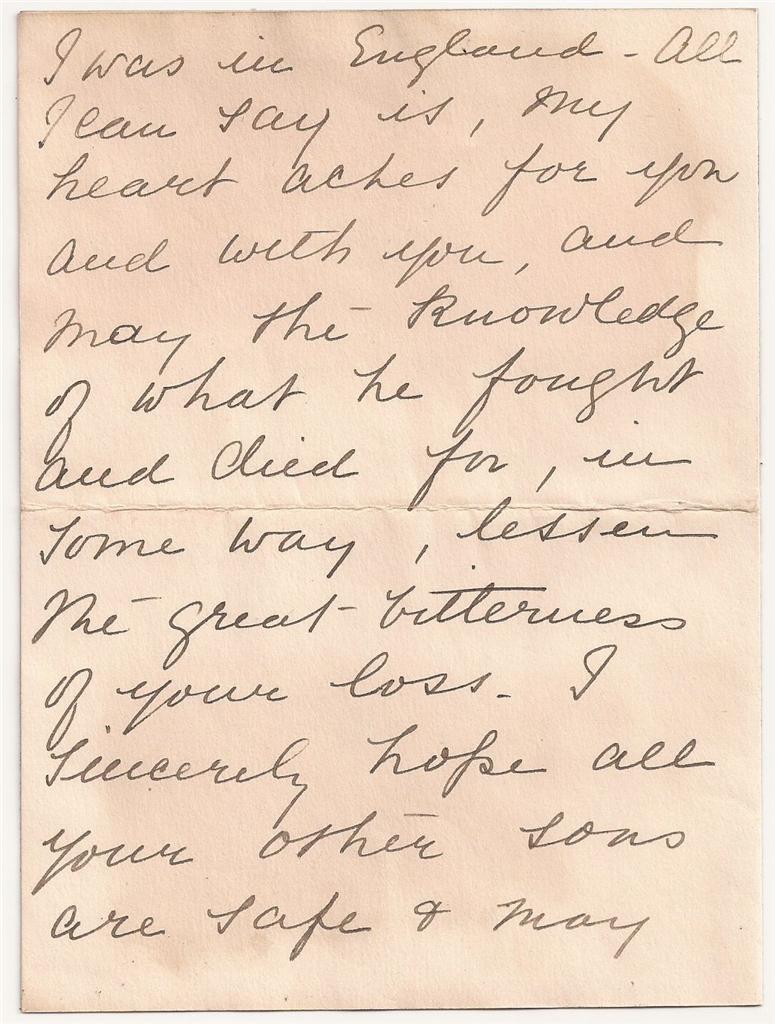 I was in England - All
I can say is, my
heart aches for you
and with you, and
may the knowledge
of what he fought
and died for, in
some way, lessen
the great bitterness
of your loss. I
sincerely hope all
your other sons
are safe & may